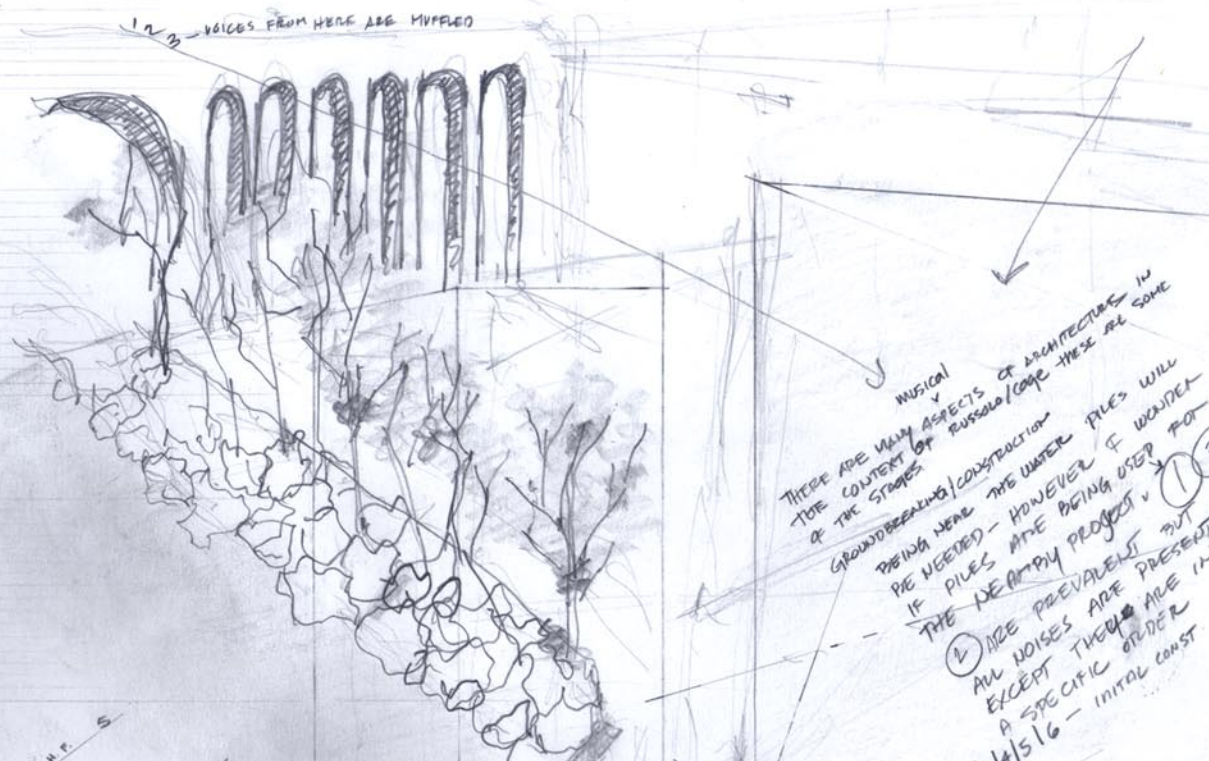 1 2 3 - VOICES FROM HERE ARE MUFFLED
MUSICAL
THERE ARE MANY ASPECTS OF ARCHITECTURES IN
THE CONTEXT OF RUSSOLO/CAGE THESE ARE SOME
OF THE STAGES
GROUNDBREAKING/CONSTRUCTION
BEING NEAR THE WATER PILES WILL
BE NEEDED - HOWEVER I WONDER
IF PILES ARE BEING USED FOR
THE NEARBY PROJECT. 1
2 ARE PREVALENT BUT
ALL NOISES ARE PRESENT
EXCEPT THEY ARE IN
A SPECIFIC ORDER
4/5/6 - INITAL CONST...
H.P. 5